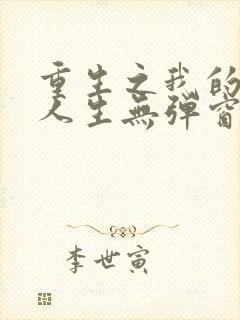 重生之我的
人生無彈窗
李世寅